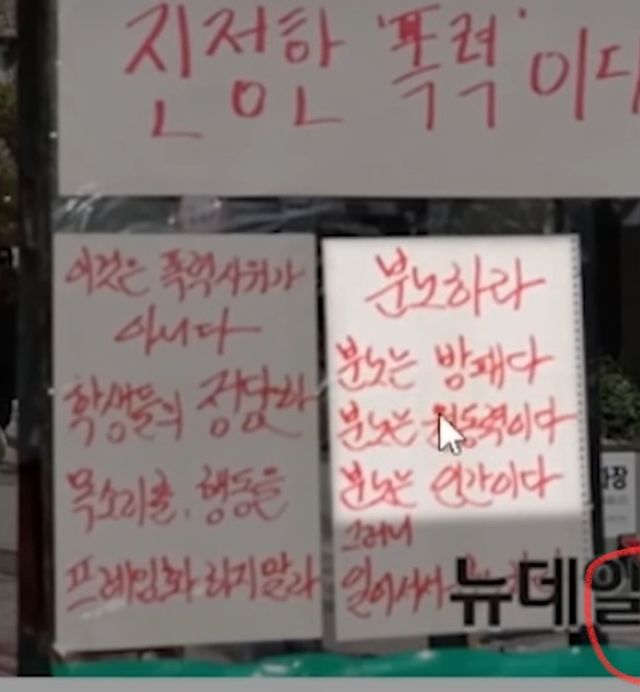 진정한 '폭력'이다
이것은 폭력시위가
아니다
학생들의 정당한
목소리를, 행동을
프레임화 하지말라
분노하라
분노는 방패다
분노는 원동력이다
분노는 인간이다
그러니
일어서서
뉴데일
장